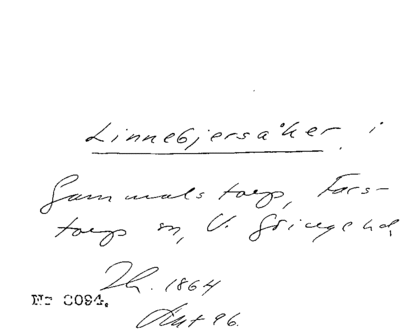 Linnebjersåker i
Gammalstorp, Fars-
torps sn, V. Göingehd,
Th. 1864
Nr 8094.
Akt 96.